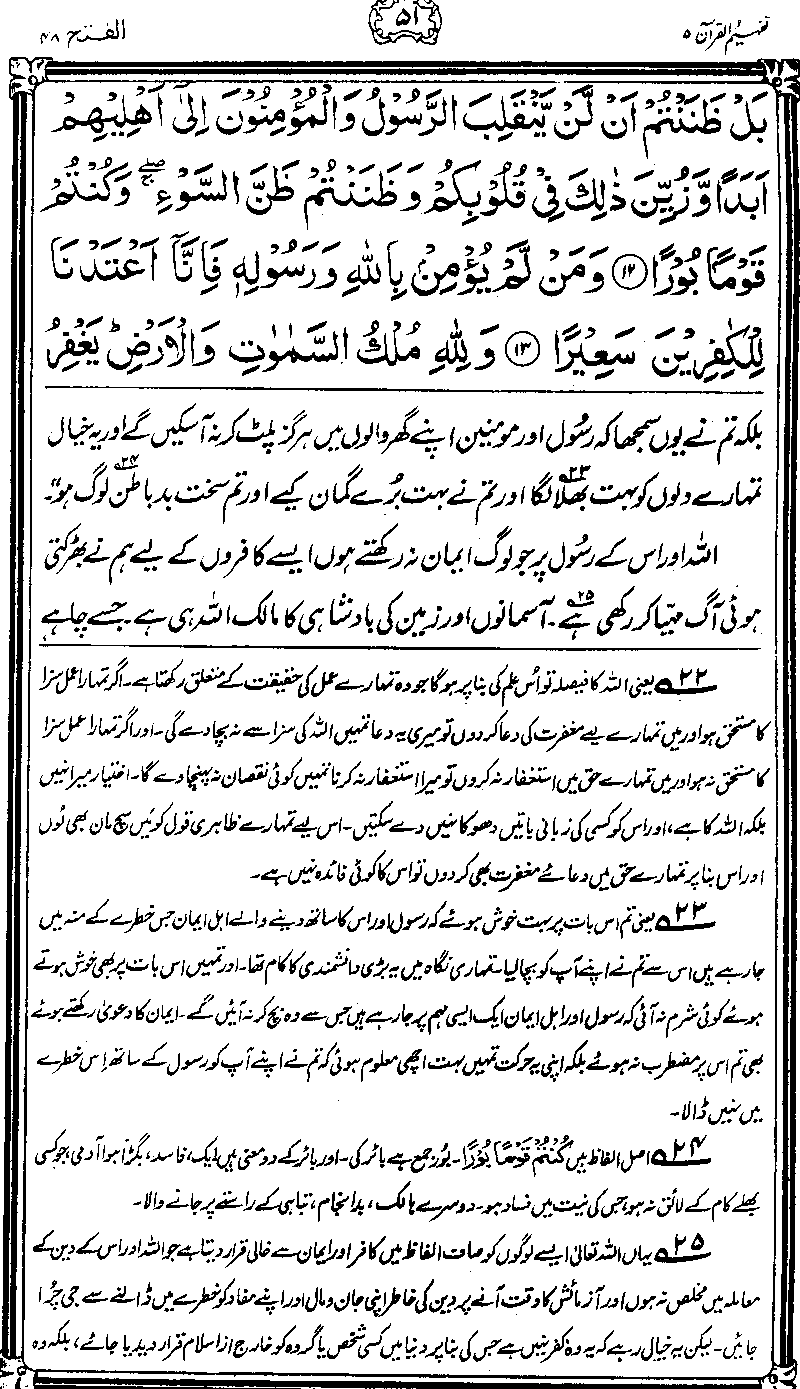 تفہیم القرآن ۵
۵۱
الفتح ۴۸
بَلْ ظَنَنْتُمْ اَنْ لَّنْ يَّنْقَلِبَ الرَّسُوْلُ وَالْمُؤْمِنُوْنَ اِلٰٓى اَهْلِيْهِمْ
اَبَدًا وَّزُيِّنَ ذٰلِكَ فِيْ قُلُوْبِكُمْ وَظَنَنْتُمْ ظَنَّ السَّوْءِ ۖۚ وَكُنْتُمْ
قَوْمًۢا بُوْرًا ﴿۱۲﴾ وَمَنْ لَّمْ يُؤْمِنْۢ بِاللّٰهِ وَرَسُوْلِهٖ فَاِنَّآ اَعْتَدْنَا
لِلْكٰفِرِيْنَ سَعِيْرًا ﴿۱۳﴾ وَلِلّٰهِ مُلْكُ السَّمٰوٰتِ وَالْاَرْضِ ؕ يَغْفِرُ
بلکہ تم نے یوں سمجھا کہ رسُول اور مومنین اپنے گھر والوں میں ہرگز پلٹ کر نہ آ سکیں گے اور یہ خیال
تمہارے دلوں کو بہت بھلا لگا۲۳ اور تم نے بہت بُرے گمان کیے اور تم سخت بد باطن لوگ ہو۲۴۔
اللہ اور اس کے رسُول پر جو لوگ ایمان نہ رکھتے ہوں ایسے کافروں کے لیے ہم نے بھڑکتی
ہوئی آگ مہیا کر رکھی ہے۲۵۔ آسمانوں اور زمین کی بادشاہی کا مالک اللہ ہی ہے۔ جسے چاہے
۲۲ یعنی اللہ کا فیصلہ تو اُس علم کی بنا پر ہو گا جو وہ تمہارے عمل کی حقیقت کے متعلق رکھتا ہے۔ اگر تمہارا عمل سزا
کا مستحق ہو اور میں تمہارے لیے مغفرت کی دعا کر دوں تو میری یہ دعا تمہیں اللہ کی سزا سے نہ بچا دے گی۔ اور اگر تمہارا عمل سزا
کا مستحق نہ ہو اور میں تمہارے حق میں استغفار نہ کروں تو میرا استغفار نہ کرنا تمہیں کوئی نقصان نہ پہنچا دے گا۔ اختیار میرا نہیں
بلکہ اللہ کا ہے، اور اس کو کسی کی زبانی باتیں دھوکا نہیں دے سکتیں۔ اس لیے تمہارے ظاہری قول کو میں سچ مان بھی لُوں
اور اس بنا پر تمہارے حق میں دعائے مغفرت بھی کر دوں تو اس کا کوئی فائدہ نہیں ہے۔
۲۳ یعنی تم اس بات پر بہت خوش ہوئے کہ رسول اور اس کا ساتھ دینے والے اہل ایمان جس خطرے کے منہ میں
جا رہے ہیں اس سے تم نے اپنے آپ کو بچا لیا۔ تمہاری نگاہ میں یہ بڑی دانشمندی کا کام تھا۔ اور تمہیں اس بات پر بھی خوش ہوتے
ہوئے کوئی شرم نہ آئی کہ رسول اور اہل ایمان ایک ایسی مہم پر جا رہے ہیں جس سے وہ بچ کر نہ آئیں گے۔ ایمان کا دعویٰ رکھتے ہوئے
بھی تم اس پر مضطرب نہ ہوئے بلکہ اپنی یہ حرکت تمہیں بہت اچھی معلوم ہوئی کہ تم نے اپنے آپ کو رسول کے ساتھ اِس خطرے
میں نہیں ڈالا۔
۲۴ اصل الفاظ ہیں كُنْتُمْ قَوْمًۢا بُوْرًا۔ بُور جمع ہے بائر کی۔ اور بائر کے دو معنی ہیں ایک، فاسد، بگڑا ہوا آدمی، جو کسی
بھلے کام کے لائق نہ ہو، جس کی نیت میں فساد ہو۔ دوسرے ہالک، بد انجام، تباہی کے راستے پر جانے والا۔
۲۵ یہاں اللہ تعالیٰ ایسے لوگوں کو صاف الفاظ میں کافر اور ایمان سے خالی قرار دیتا ہے جو اللہ اور اس کے دین کے
معاملہ میں مخلص نہ ہوں اور آزمائش کا وقت آنے پر دین کی خاطر اپنی جان و مال اور اپنے مفاد کو خطرے میں ڈالنے سے جی چُرا
جائیں۔ لیکن یہ خیال رہے کہ یہ وہ کفر نہیں ہے جس کی بنا پر دنیا میں کسی شخص یا گروہ کو خارج از اسلام قرار دیدیا جائے، بلکہ وہ